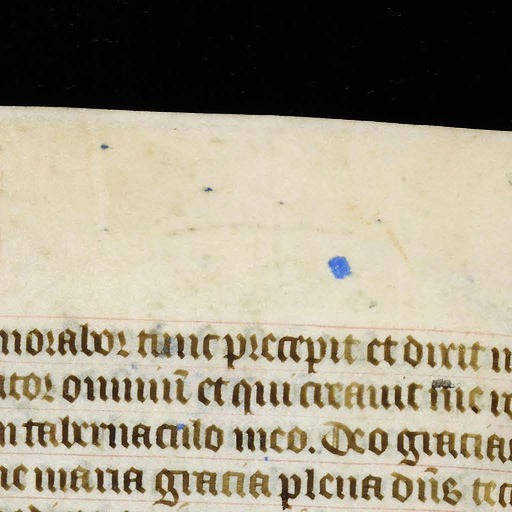 morabor tunc precepit et dixit
ator omniū et qui creauit me
tabernaculo meo. Deo gracias
maria gracia plena dn̄s